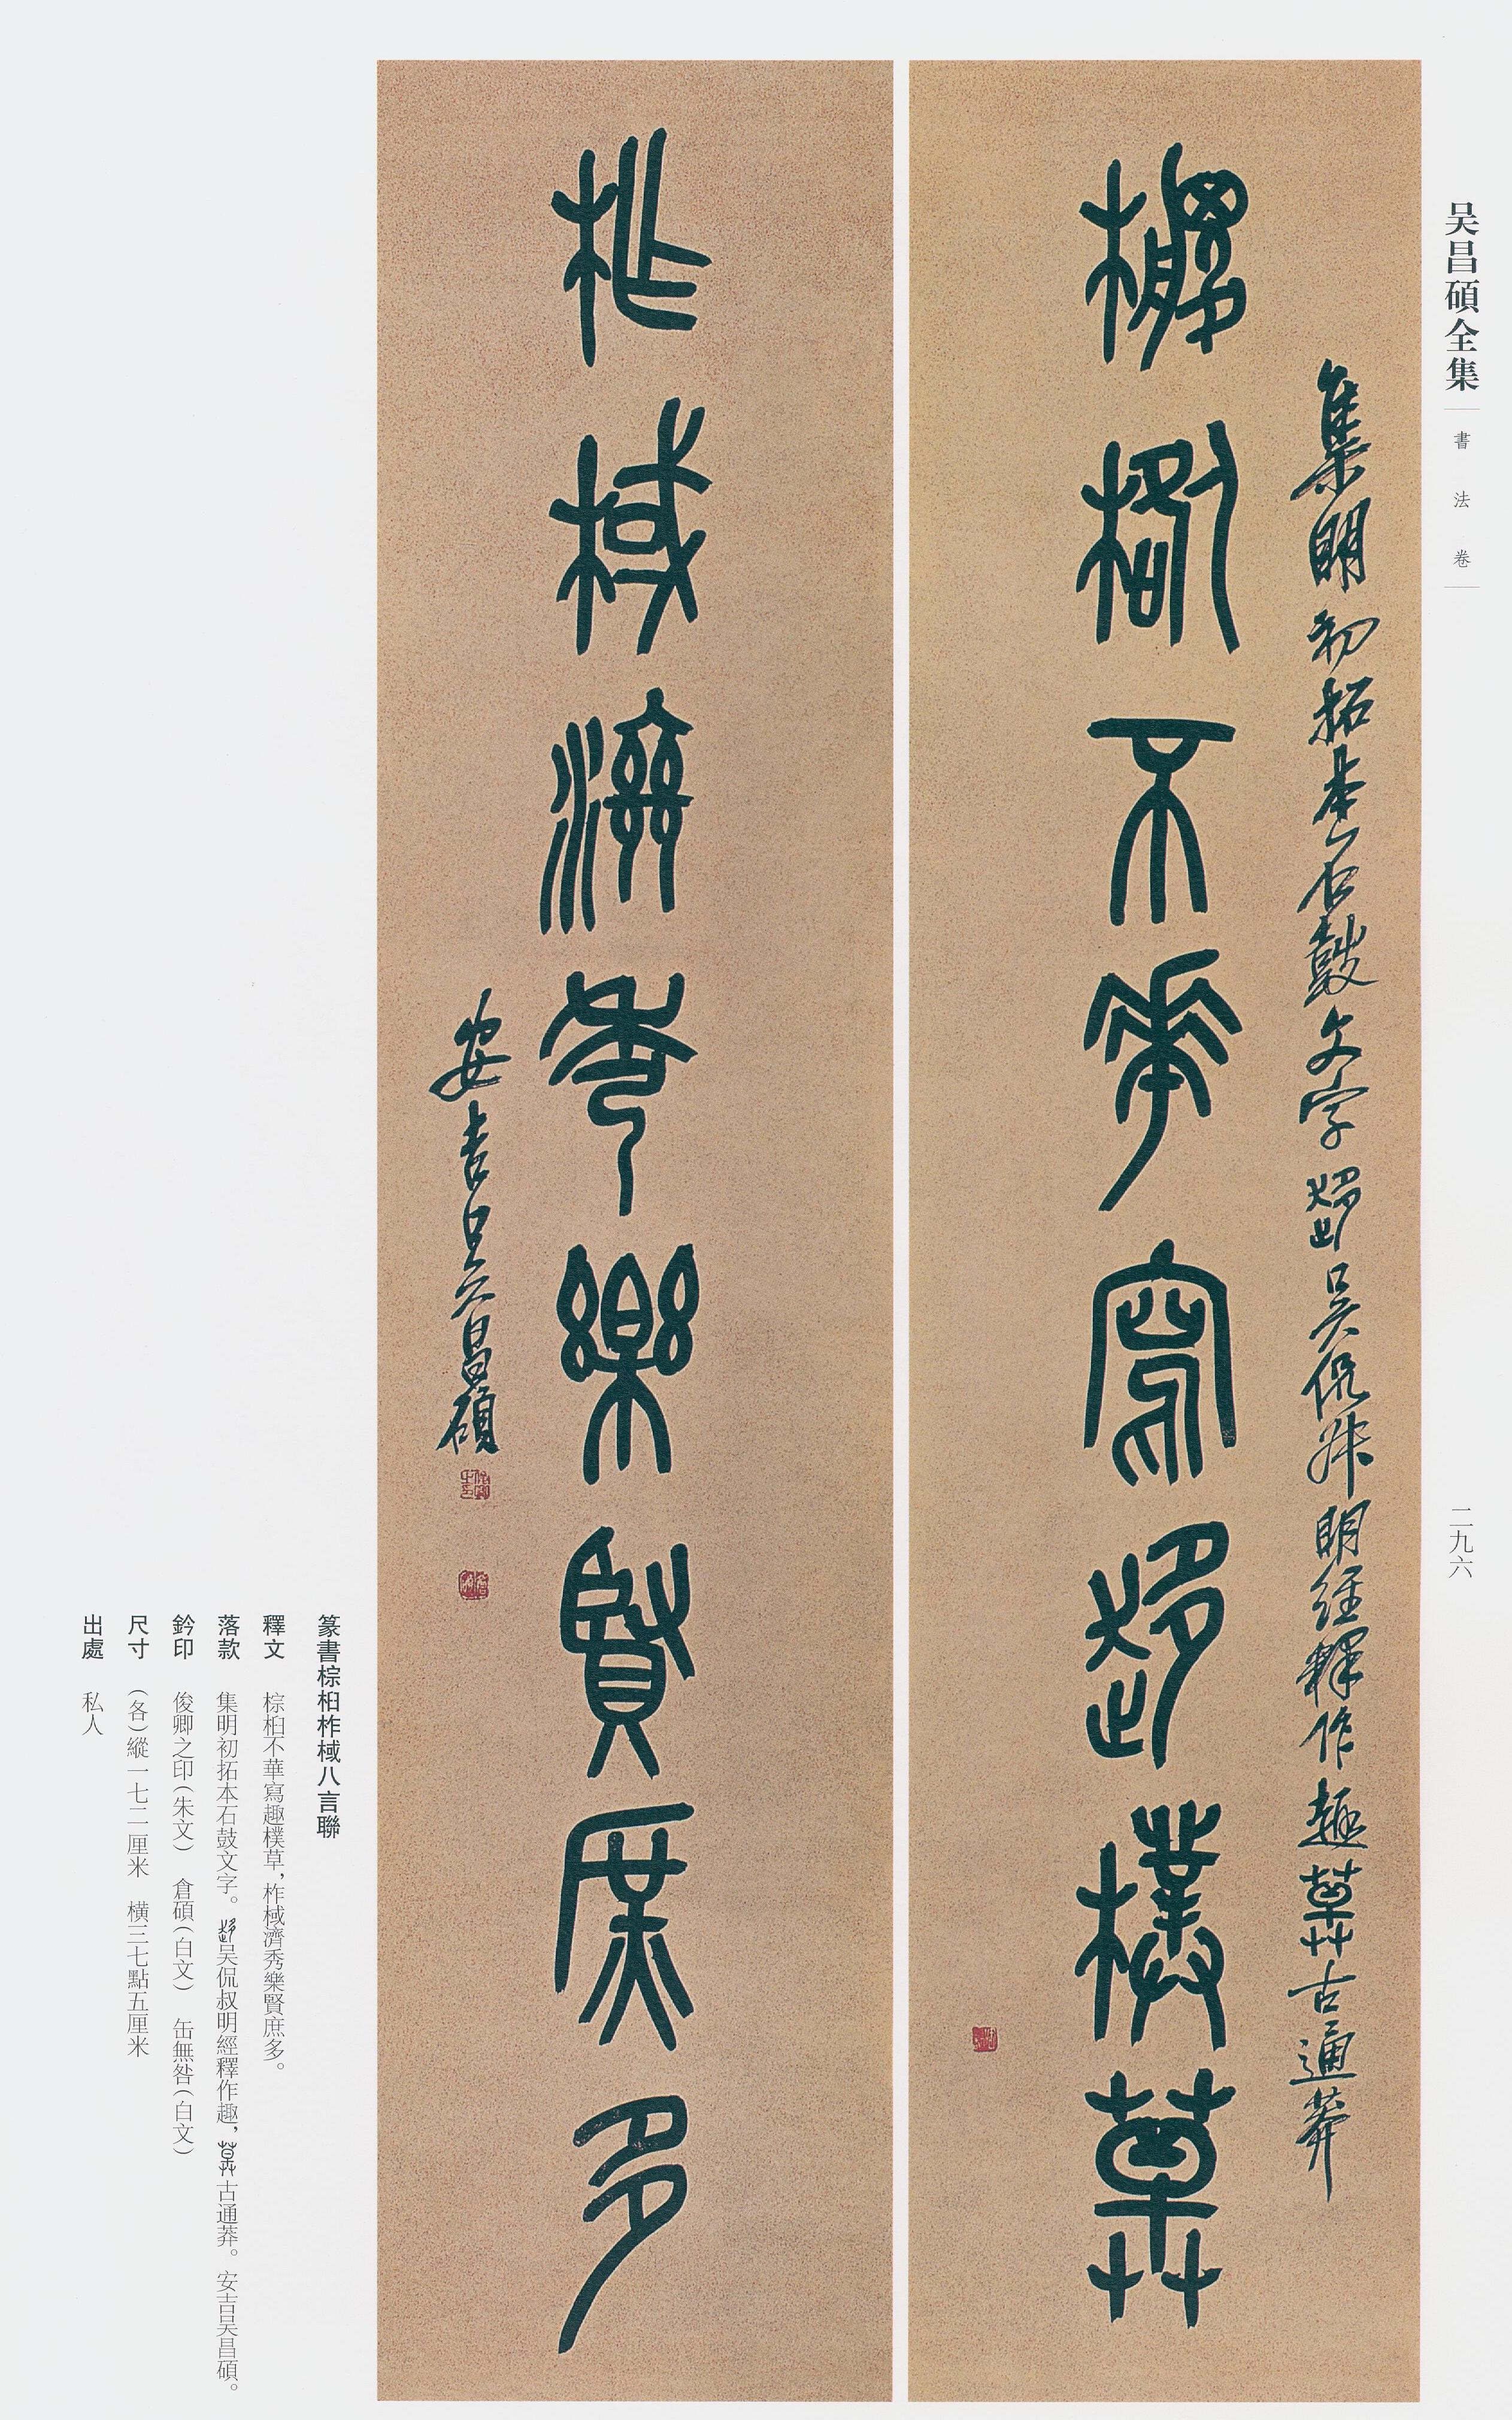 吴昌碩全集
書法卷
二九六
集明初拓本石鼓文字 吴侃叔明經釋作趣 古通莽
不華寫趣樸草
柞棫濟秀樂賢庶多
安吉吴昌碩
篆書棕桕柞棫八言聯
釋文 棕桕不華寫趣樸草，柞棫濟秀樂賢庶多。
落款 集明初拓本石鼓文字。吴侃叔明經釋作趣，古通莽。安吉吴昌碩。
鈐印 俊卿之印（朱文） 倉碩（白文） 缶無咎（白文）
尺寸 （各）縱一七二厘米 橫三七點五厘米
出處 私人